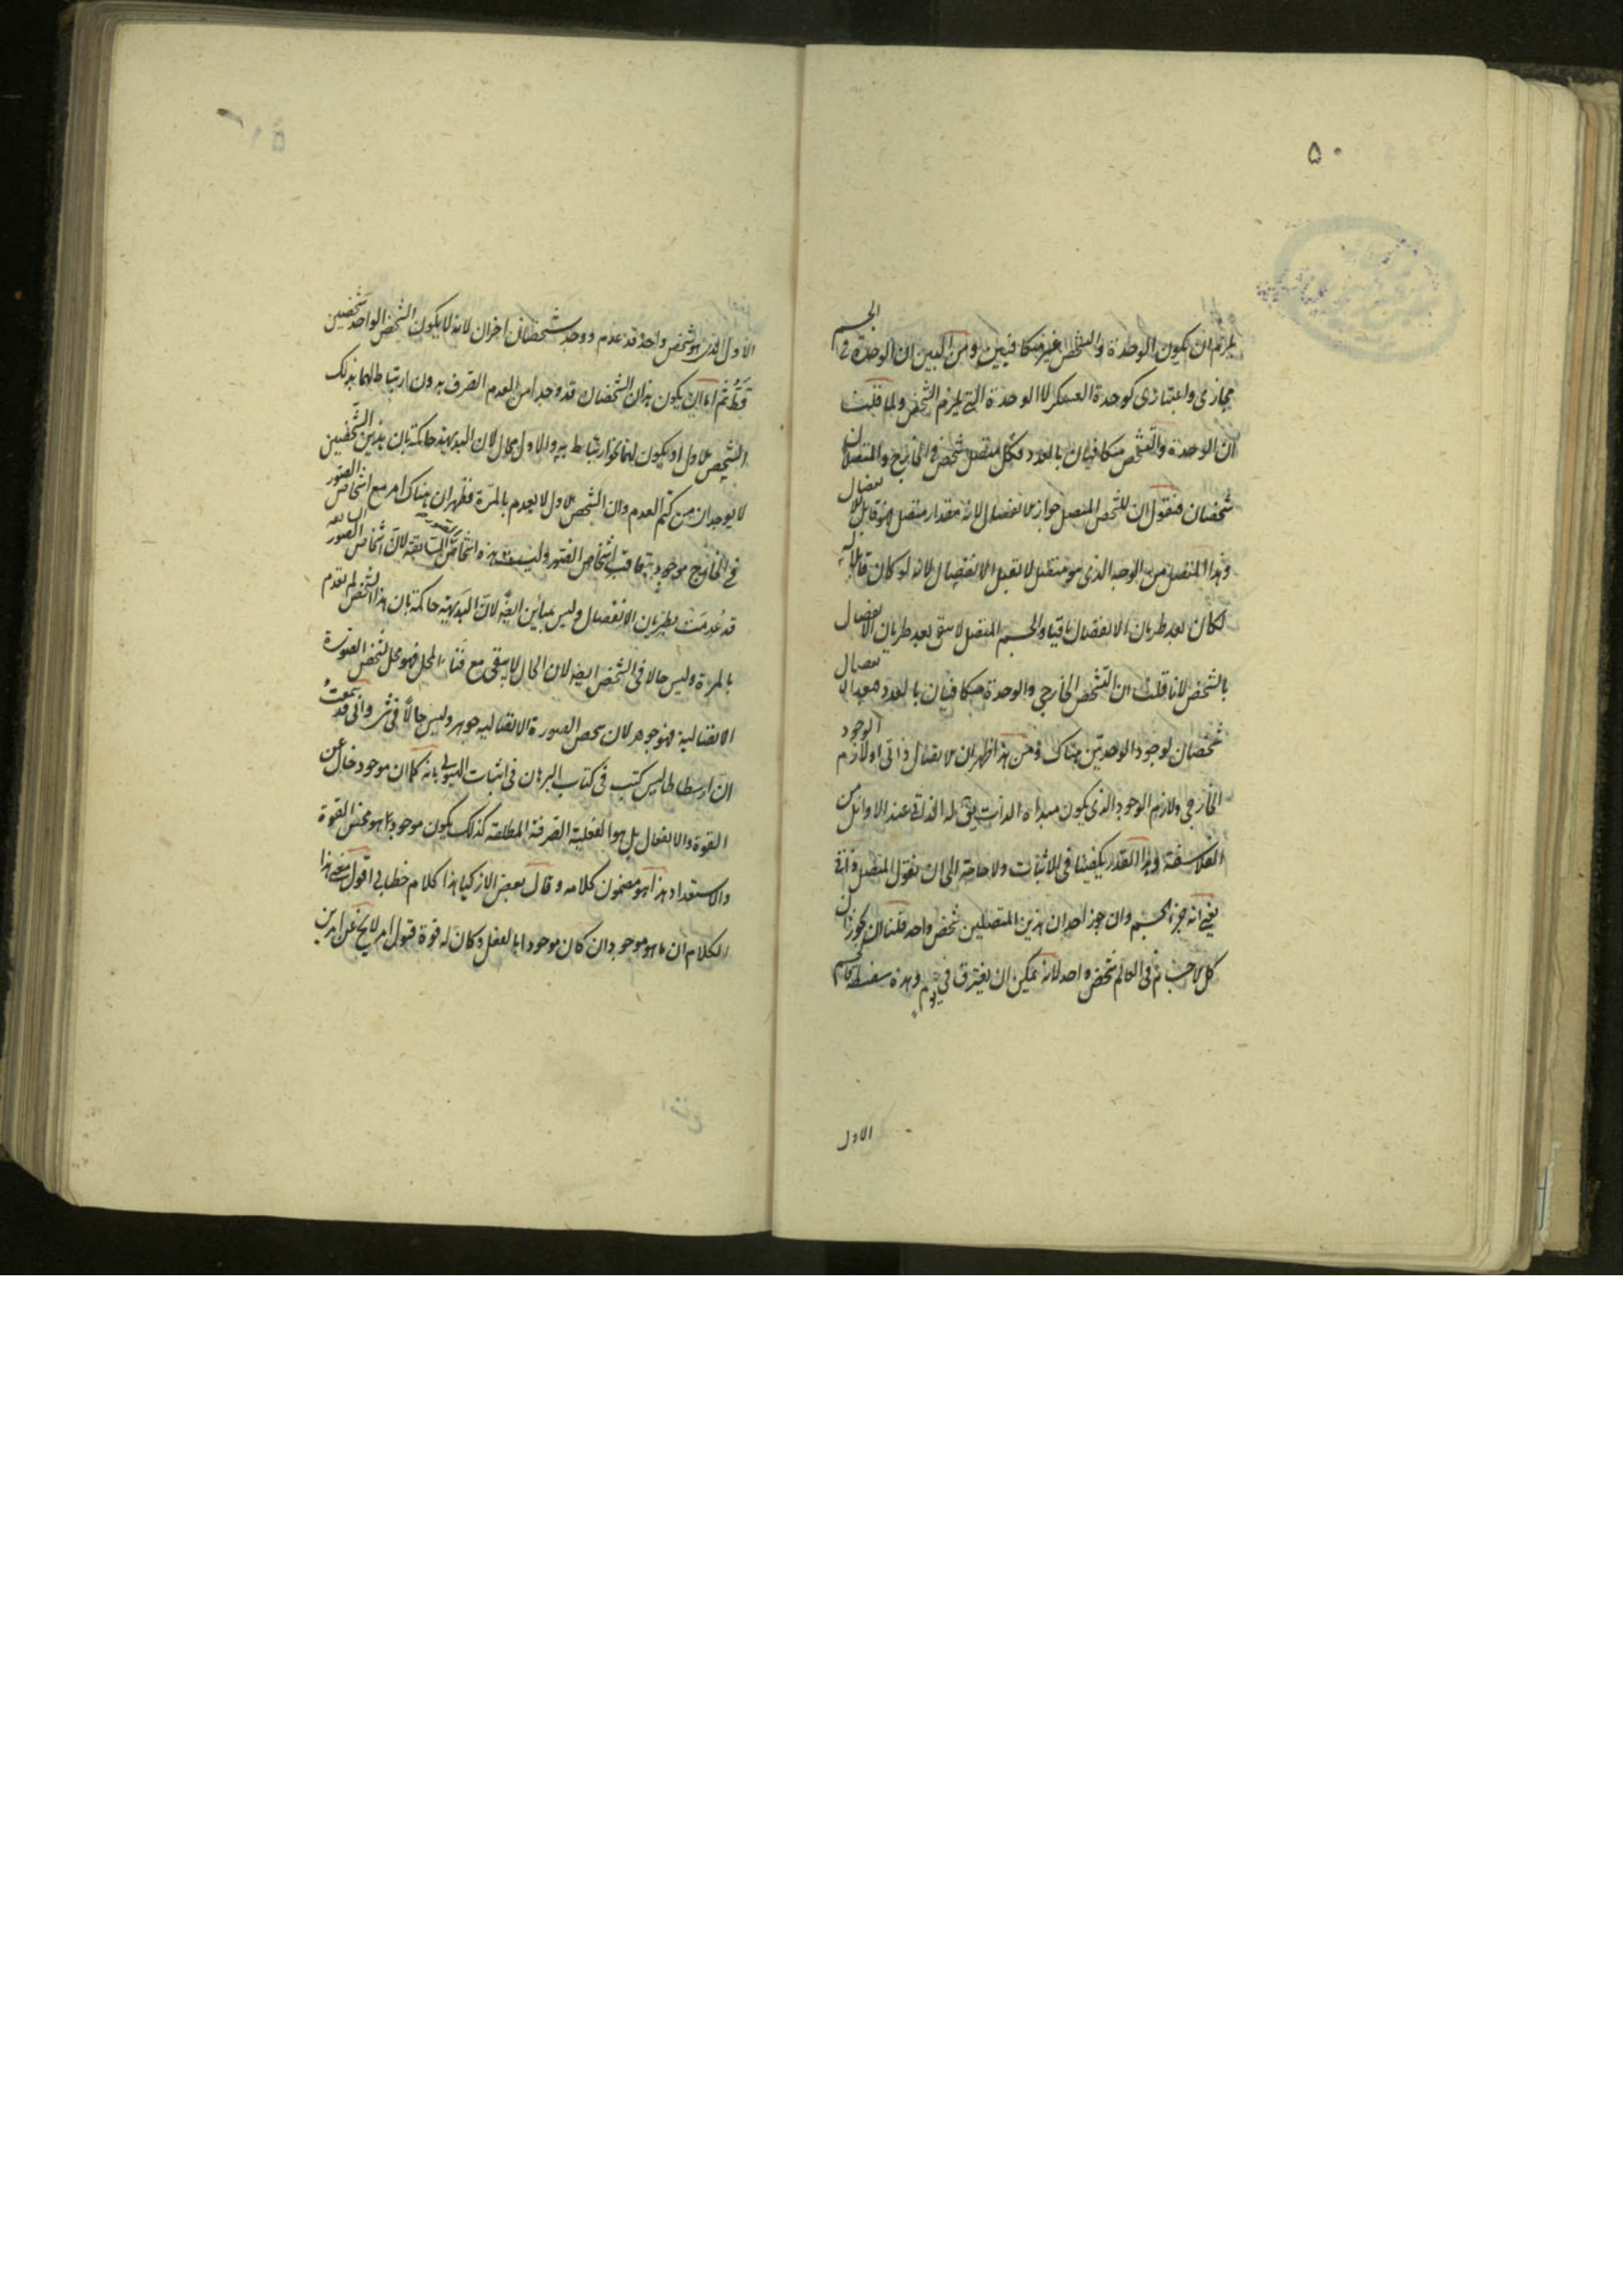 ۵۰
يلزم ان يكون الوحدة والتشخص غير متكافيين ومن البين ان الوحدة فى الجسم
مجازى واعتبارى كوحدة العسكر لا الوحدة التى يلزم الشخص ولما قلت
ان الوحدة والتشخص متكافيان بالعدد فكل متصل شخص فى الخارج والمنفصلان
شخصان فنقول ان للشخص المتصل جواز الانفصال لانه مقدار متصل فهو قابل للانفصال
وهذا المتصل من الوجه الذى هو متصل لا تقبل الانفصال لانه لو كان قابلا له
لكان بعد طريان الانفصال باقيا والجسم المتصل لا يبقى بعد طريان الانفصال
بالشخص لانا قلت ان التشخص الخارجى والوحدة متكافيان بالعدد انفصال
شخصان لوجود الوحدتين هناك ومن هذا ظهر ان الاتصال ذاتى او لازم الوجود
الخارجى ولازم الوجود الذى يكون مبداه الذات يق له الذاتى عند الاوائل من
الفلاسفة وهذا القدر يكفينا فى الاثبات ولا حاجة الى ان نقول المتصل ذاتى
يعنى انه جزء الجسم وان جوز احد ان هذين المتصلين شخص واحد قلنا له يجوز ان
كل الاجسام فى العالم شخص واحد لانه يمكن ان يفترق فى يوم وهذه سفسطة الجسم
الاول
الاول الذى هو شخص واحد قد عدم ووجد شخصان اخران لانه لا يكون الشخص الواحد شخصين
قط ثم اما ان يكون هذان الشخصان قد وجدا من العدم الصرف بدون ارتباط لهما بذلك
الشخص الاول او يكون لهما نحو ارتباط به والاول محال لان البديهة حاكمة بان هذين الشخصين
لا يوجدان من كتم العدم وان الشخص الاول لا يعدم بالمرة فظهر ان هناك امر مع اشخاص الصور
فى الخارج موجود بتعاقب اشخاص الصور وليست هذه اشخاص السابقة لان اشخاص الصور السابقة
قد عدمت بطريان الانفصال وليس بمباين ايضا لان البديهة حاكمة بان هذا الشخص لم يعدم
بالمرة وليس حالا فى الشخص ايضا لان الحال لا يبقى مع فناء المحل فهو محل لشخص الصورة
الاتصالية فهو جوهر لان شخص الصورة الاتصالية جوهر وليس حالا فى شىء وانى قد سمعت
ان ارسطاطاليس كتب فى كتاب البرهان فى اثبات الهيولى بانه كما ان موجود خال عن
القوة والانفعال بل هو الفعلية الصرفة المطلقة كذلك يكون موجود ما هو محض القوة
والاستعداد هذا هو مضمون كلامه وقال بعض الازكيا هذا كلام خطابى اقول معنى هذا
الكلام ان ما هو موجود ان كان موجودا بالفعل وكان له قوة قبول امر لا يخ عن امرين